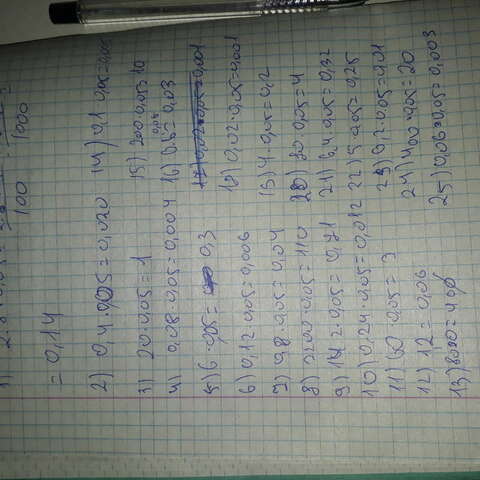 = 0,14
2) 0,4 · 0,05 = 0,020
3) 20 · 0,05 = 1
4) 0,08 · 0,05 = 0,004
5) 6 · 0,05 = 0,3
6) 0,12 · 0,05 = 0,006
7) 0,8 · 0,05 = 0,04
8) 2200 · 0,05 = 110
9) 14,2 · 0,05 = 0,71
10) 0,24 · 0,05 = 0,012
11) 60 · 0,05 = 3
12) 1,2 = 0,06
13) 8000 = 400
14) 0,1 · 0,05 = 0,005
15) 200 · 0,05 = 10
16) 0.6 = 0,03
0,05
17) 0,02 · 0,05 = 0,001
18) 0,02 · 0,05 = 0,001
19) 4 · 0,05 = 0,2
20) 80 · 0,05 = 4
21) 6,4 · 0,05 = 0,32
22) 5 · 0,05 = 0,25
23) 0,2 · 0,05 = 0,01
24) 400 · 0,05 = 20
25) 0,06 · 0,05 = 0,003